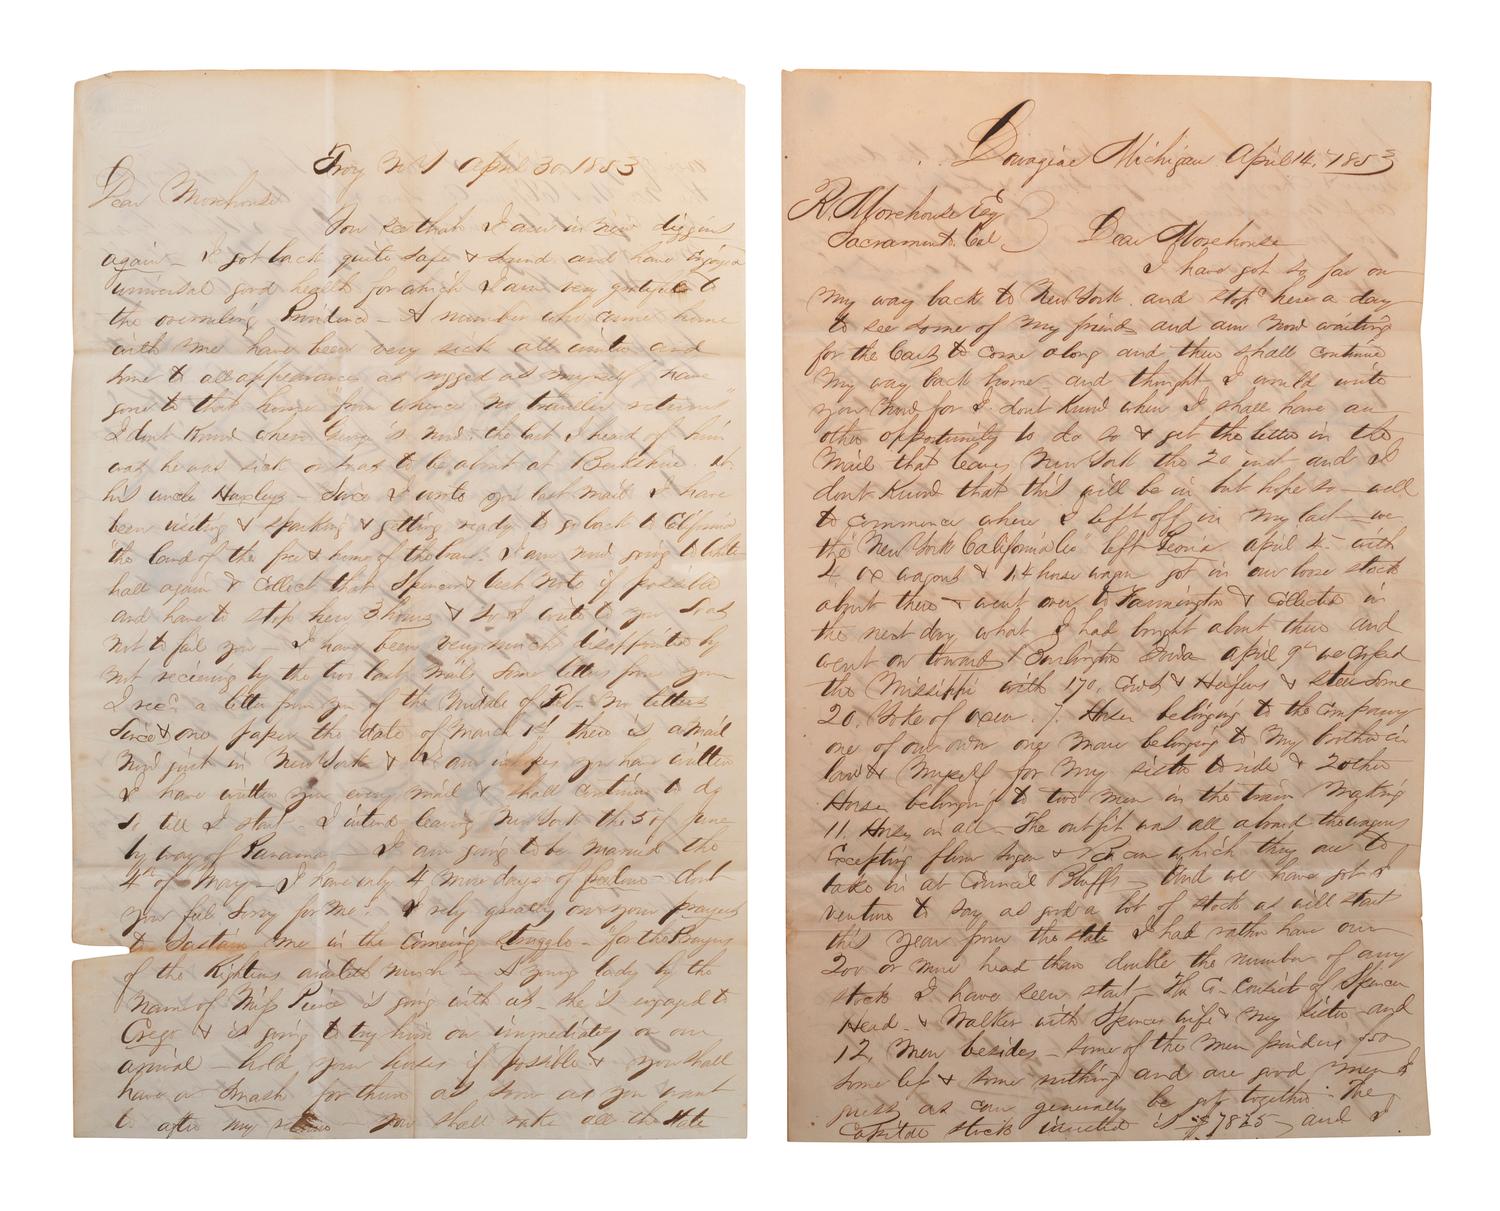 Troy N Y April 30. 1853
Dear Morehouse
You see that I am in new diggins
again - I got back quite safe & sound and have enjoyed
universal good health for which I am very grateful to
the overruling Providence - A number who came home
with me have been very sick all winter and
some to all appearance as rugged as myself have
gone to that home "from whence no traveler returns"
I dont know where George is now. the last I heard of him
was he was sick or was to be about at Berkshire. at
his uncle Huxleys - Since I wrote you last mail I have
been visiting & sparking & getting ready to go back to California
"the land of the free & home of the brave". I am now going to White
hall again to Collect that Spencer last note if possible
and have to stop here 3 hours & so I write to you so as
not to fail you - I have been very much disappointed by
not recieving by the two last mails some letters from you
I recd a letter from you of the Middle of Feb - no letters
Since & one paper the date of March 1st there is a mail
Now just in New York & I am in hopes you have written
I have written you every mail & shall continue to do
so till I start - I intend leaving New York the 5 of June
by way of Panama - I am going to be married the
4th of May - I have only 4 more days of - dont
you feel sorry for me? I rely greatly on your prayers
to sustain me in the comeing struggle - "for the Prayers
of the Righteous availeth much" - A young lady by the
name of Miss Peirce is going with us - she is engaged to
Crego & is going to try him on immediately on our
arrival - hold your horses if possible & you shall
have a smash for them as soon as you want
to after my return - you shall rake all the State
Dowagiac Michigan April 14. 1853
R. Morehouse Esq
Sacramento. Cal
Dear Morehouse
I have got so far on
my way back to New York. and stopd here a day
to see some of my friends and am now waiting
for the Cars to come along and then shall continue
my way back home and thought I would write
you now, for I dont know when I shall have an
other opportunity to do so & get the letter in the
Mail that leaves New York the 20 inst and I
dont know that this will be in but hope so - well
to commence where I left off in my last - we
the "New York California Co" left Peoria April 4th with
4. ox wagons & 1. 4 horse wagon got in our loose stock
about there & went over to Farmington & Collected in
the next day what I had bought about there and
went on toward Burlington Iowa April 9th we crossed
the Missippi with 170. Cows & Heifers & steers some
20. Yoke of oxen. 7. Horses belonging to the Company
one of our own one mare belonging to My brother in
law & Myself for my sister to ride & 2 other
Horses belonging to two men in the train Making
11. Horses in all - The outfit was all aboard the wagons
Excepting flour sugar & Bacon which they are to
take in at Council Bluffs - And we have got I
venture to say as good a lot of stock as will start
this year from the state I had rather have our
200 or more head than double the number of any
stock I have seen start - The Co. Consist of Spencer
Head. & Walker with Spencers wife & my sister - and
12. Men besides - some of the men paid us $50
some less & some nothing and are good men I
guess as can generally be got together - The
Capital stock invested is $7825 - and I